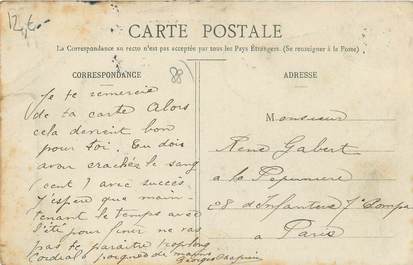 CARTE POSTALE
La Correspondance au recto n'est pas acceptée par tous les Pays Étrangers. (Se renseigner à la Poste)
CORRESPONDANCE
Je te remercie
de ta carte Alors
cela devient bon
pour toi. Tu dois
avoir crachés le sang
(cent) avec succès
J'espère que main-
tenant le temps avec
l'été pour finir ne vas
pas te paraître trop long
Cordiale poignée de mains
Georges
ADRESSE
Monsieur
René Gabert
a la Pépinière
28 d'Infanterie 7e Compa
a Paris